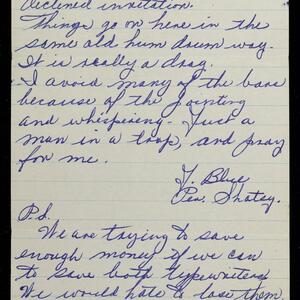 declined invitation.
Things go on here in the
same old hum drum way.
It is really a drag.
I avoid many of the bars
because of the pointing
and whispering - Just a
man in a trap, and pray
for me.
T. Blue
P.S.
We are trying to save
enough money if we can
to save both typewriters
We would hate to lose them